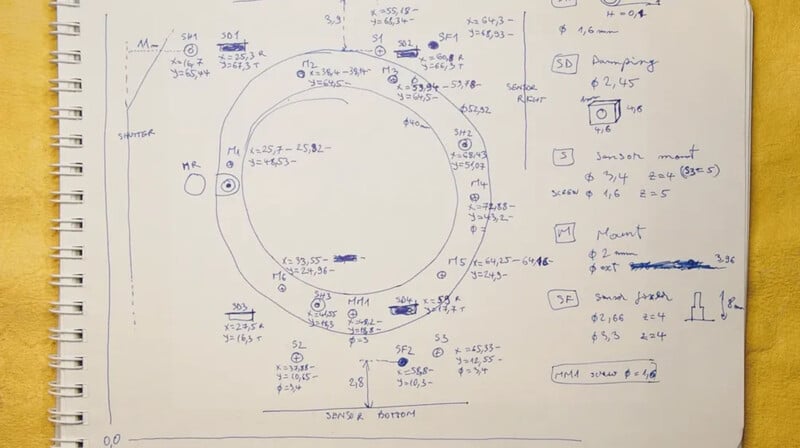 3,9
x=55,18-
y=61,34-
x=64,3-
y=68,93-
H=0,1
ϕ 1,6mm
SH1
x=14,7
y=65,44
SD1
x=25,3 R
y=67,3 T
S1
SD2
SF1
x=60,8 R
y=66,3 T
M2
x=38,4-38,4-
y=64,5-
M3
x=59,94 - 59,78-
y=64,5-
SENSOR
RIGHT
SD Damping
ϕ 2,45
4,8
4,6
SHUTTER
ϕ52,92
ϕ40
SH2
x=68,43
y=51,07
M1
x=25,7- 25,82-
y=48,53-
MR
M4
x=72,88-
y=43,2-
ϕ=
S Sensor mount
ϕ 3,4 z=4 (S3=5)
SCREW ϕ 1,6 z=5
M Mount
ϕ 2 mm
ϕ ext 3,96
x=33,55-
y=24,96-
M6
M5
x=64,25-64,16-
y=24,9-
SF Sensor fixer
ϕ2,66 z=4
ϕ3,3 z=4
8mm
SD3
x=27,5 R
y=16,3 T
SH3
MM1
x=48,2-
y=18,8-
ϕ=3
SD4
x=59 R
y=17,7 T
S2
x=37,88-
y=10,65-
ϕ=3,4
2,8
SF2
x=58,8-
y=10,3-
S3
x=65,33-
y=12,55-
ϕ=3,4
MM1 screw ϕ=1,6
SENSOR BOTTOM
0,0